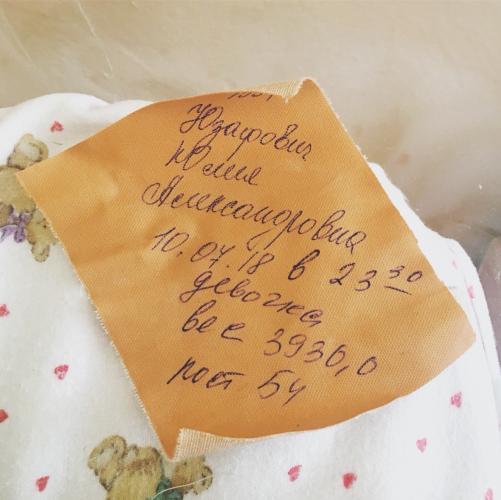 Юзафович
Юлия
Александровна
10.07.18 в 23 30
девочка
вес 3930,0
рост 54